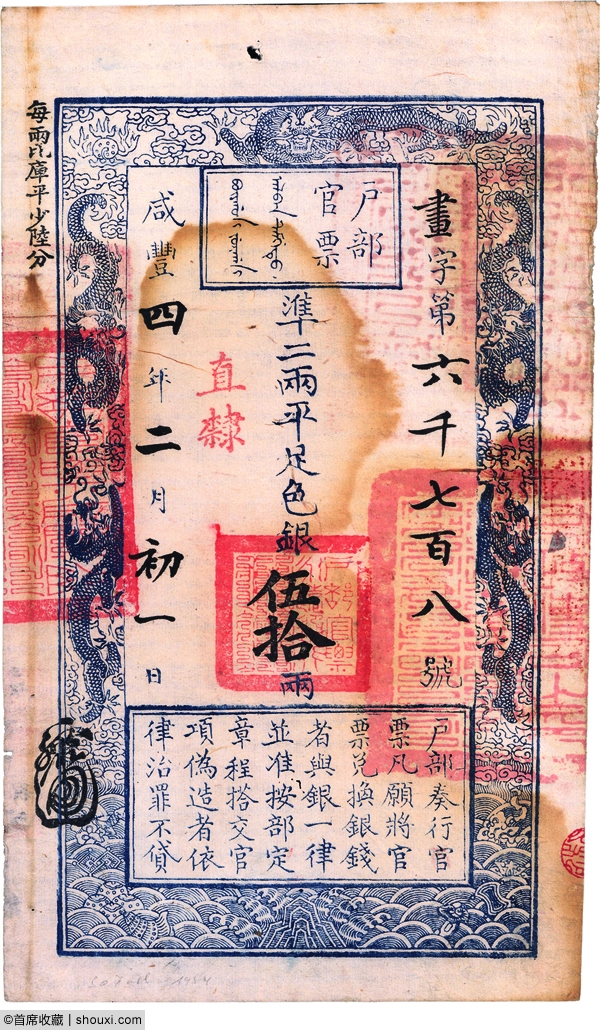 畫字第六千七百八號
户部
官票
準二兩平足色銀伍拾兩
直隸
咸豐四年二月初一日
每兩比庫平少陸分
户部奏行官
票凡願將官
票兑換銀錢
者與銀一律
並准按部定
章程搭交官
項偽造者依
律治罪不貸
©首席收藏 | shouxi.com